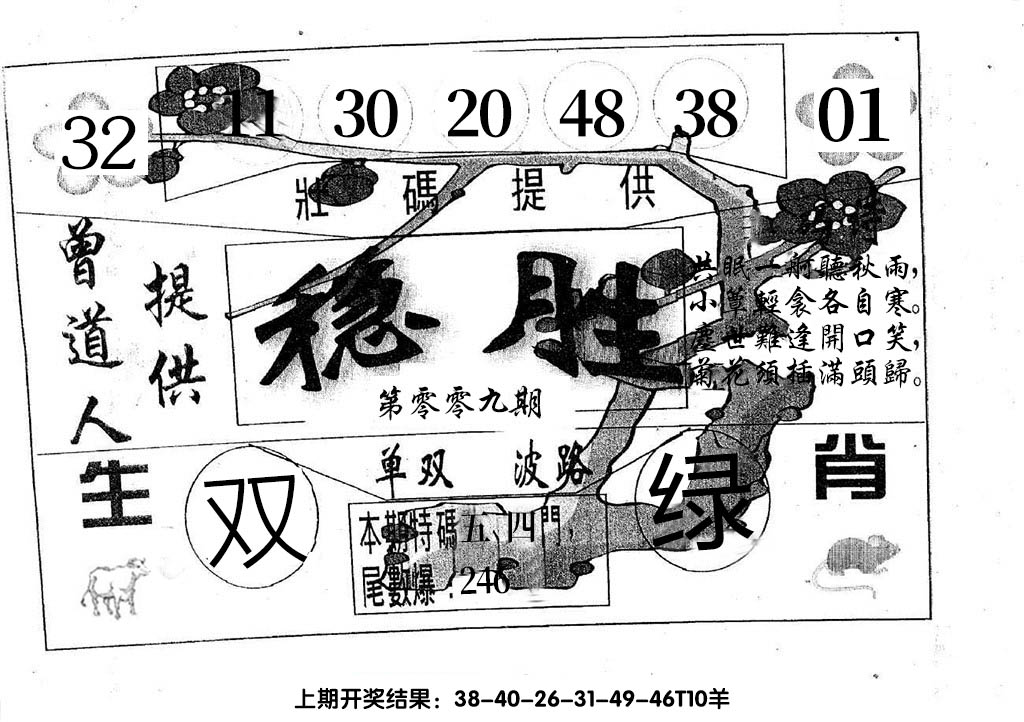 32 11 30 20 48 38 01
壯碼提供
特
曾道人
提供
稳胜
第零零九期
共眠一舸聽秋雨，
小簟輕衾各自寒。
塵世難逢開口笑，
蘭花須插滿頭歸。
单双 波路
生肖
双
绿
本期特碼五、四門，
尾數爆：246
上期开奖结果：38-40-26-31-49-46T10羊